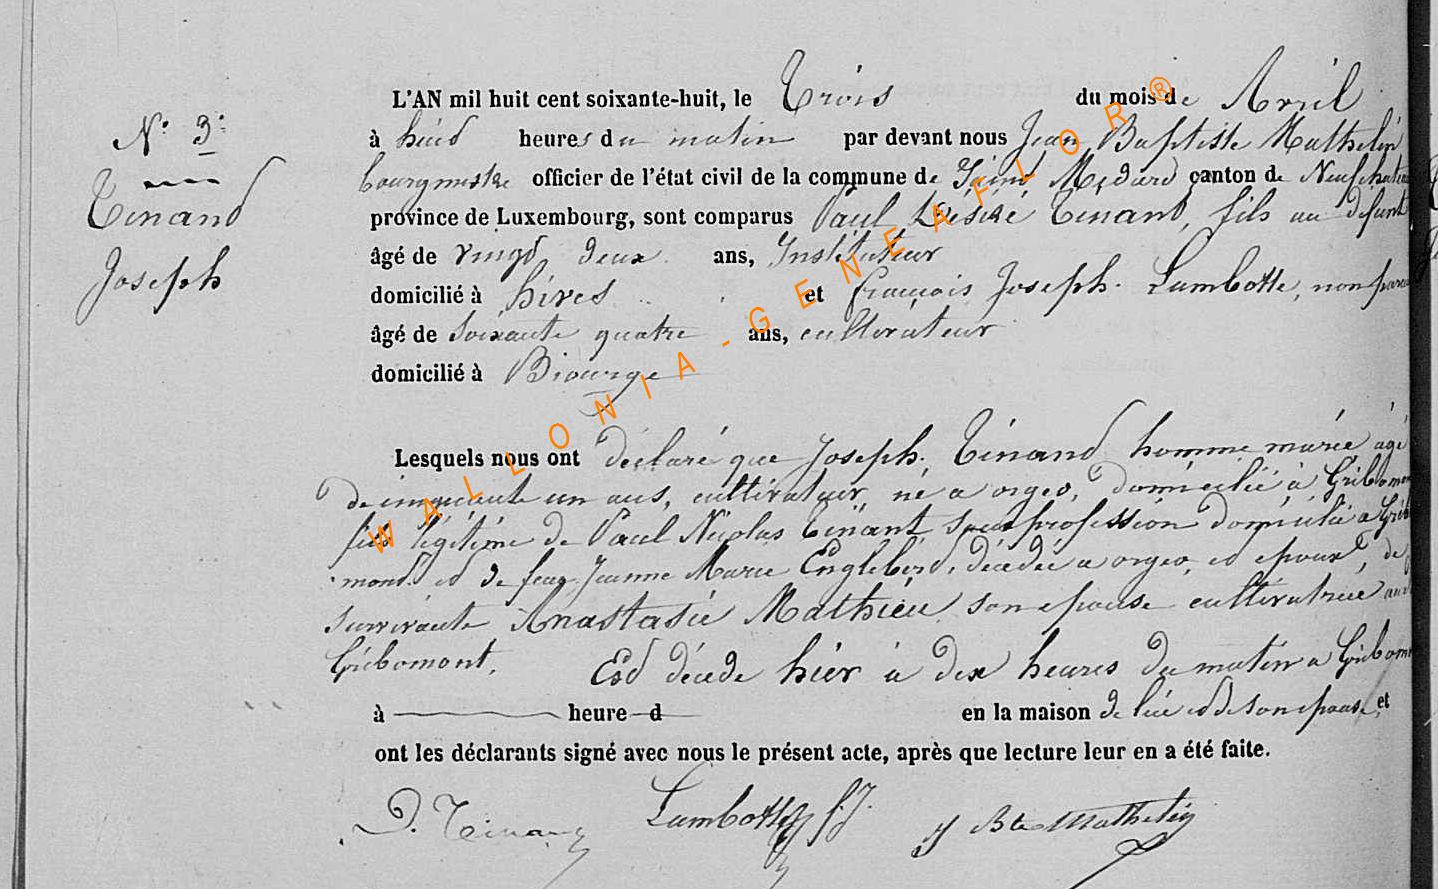 L'AN mil huit cent soixante-huit, le Trois du mois de Avril
N.° 3.
à huid heures du matin par devant nous Jean Baptiste Mathelin
bourgmestre officier de l'état civil de la commune de Saint Médard canton de Neufchateau
Tinand
province de Luxembourg, sont comparus Paul Désiré Tinant, fils au defunt
âgé de vingd deux ans, Instituteur
Joseph
domicilié à hives et françois Joseph Lambotte, non
âgé de soixante quatre ans, cultivateur
domicilié à Biourge
Lesquels nous ont déclaré que Joseph Tinand homme marié âgé
de cinquante un ans, cultivateur né a orgeo, domicilié à
fils légitime de Paul Nicolas Tinant sans profession domicilié a
mond. et de feue Jeanne Marie Englebert, décédée a orgeo, et epoux, de
survivante Anastasie Mathieu son epouse cultivatrice
Gribomont. Esd décédé hier à dix heures du matin a
à heure d en la maison de lui et de son epouse, et
ont les déclarants signé avec nous le présent acte, après que lecture leur en a été faite.
P. Tinant Lambotte f. J. J Bte Mathelin
WALLONIA-GENEAFLOR®